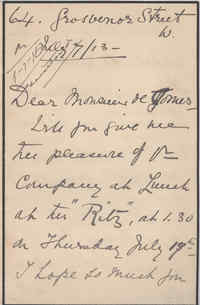 64. Grosvenor Street
W.
July 7/13-
Dear Monsieur de
Will you give me
the pleasure of yr
Company at Lunch
at the "Ritz", at 1.30
on Thursday July
I hope so much you